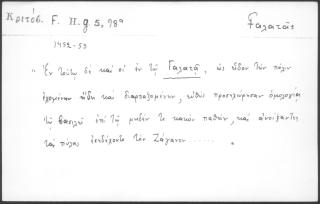 Κριτόβ. F. H. g 5, 789
Γαλατᾶς
1452-53
" Ἐν τούτῳ δὲ καὶ οἱ ἐν τῇ Γαλατᾷ, ὡς εἶδον τὴν πόλιν
ἐχομένην ἤδη καὶ διαρπαζομένην, εὐθὺς προσεχώρησαν ὁμολογίᾳ
τῷ βασιλεῖ ἐπὶ τῷ μηδέν τι κακὸν παθεῖν, καὶ ἀνοίξαντες
τὰς πύλας ἐκδέχονται τὸν Ζάγανον ...... .